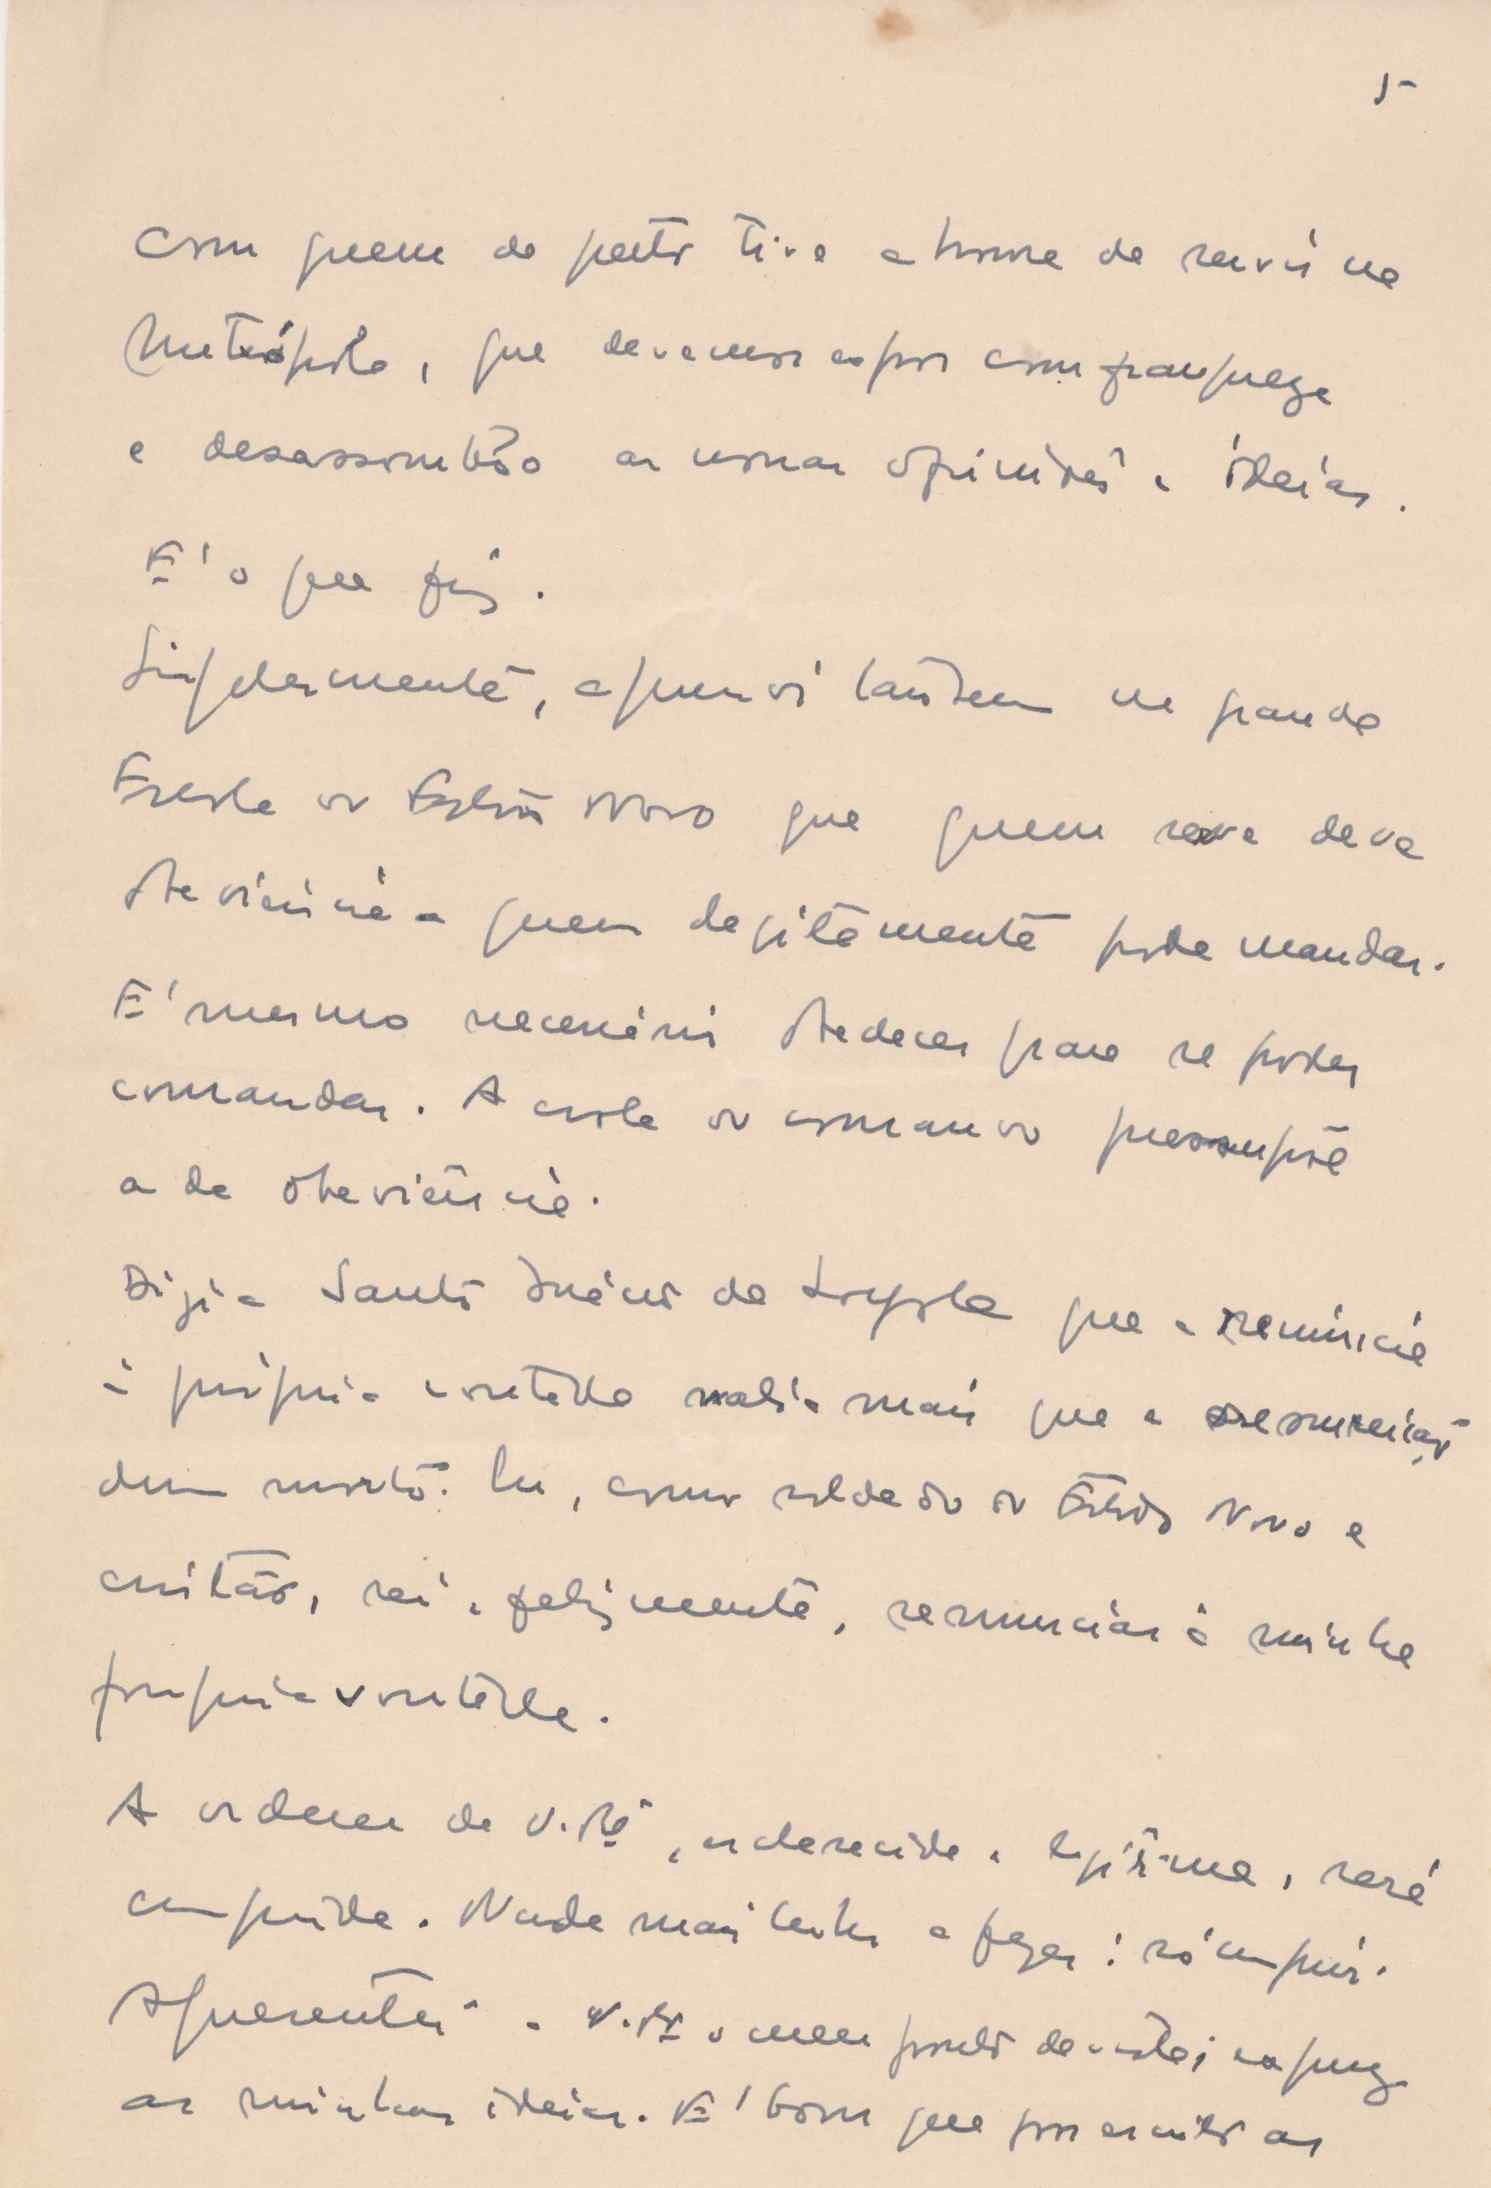 5
com quem de perto tive a honra de servir na
Metrópole, que devemos expor com franqueza
e desassombro as nossas opiniões e ideias.
E' o que fiz.
Singularmente, aprendi tambem na grande
Escola do Estado Novo que quem serve deve
obediencia a quem legitimamente pode mandar.
E' mesmo necessário obedecer para se poder
comandar. A escola do comando pressupõe
a da obediência.
Dizia Santo Inácio de Loyola que a renúncia
à própria vontade valia mais que a ressurreição
dum morto. Eu, como soldado do Estado Novo e
cristão, sei, felizmente, renunciar à minha
propria vontade.
A ordem de V. Exª, esclarecida e legitima, será
cumprida. Nada mais tenho a fazer: só cumprir.
Apresentei a V. Exª o meu ponto de vista; expuz
as minhas ideias. E' bom que por escrito as